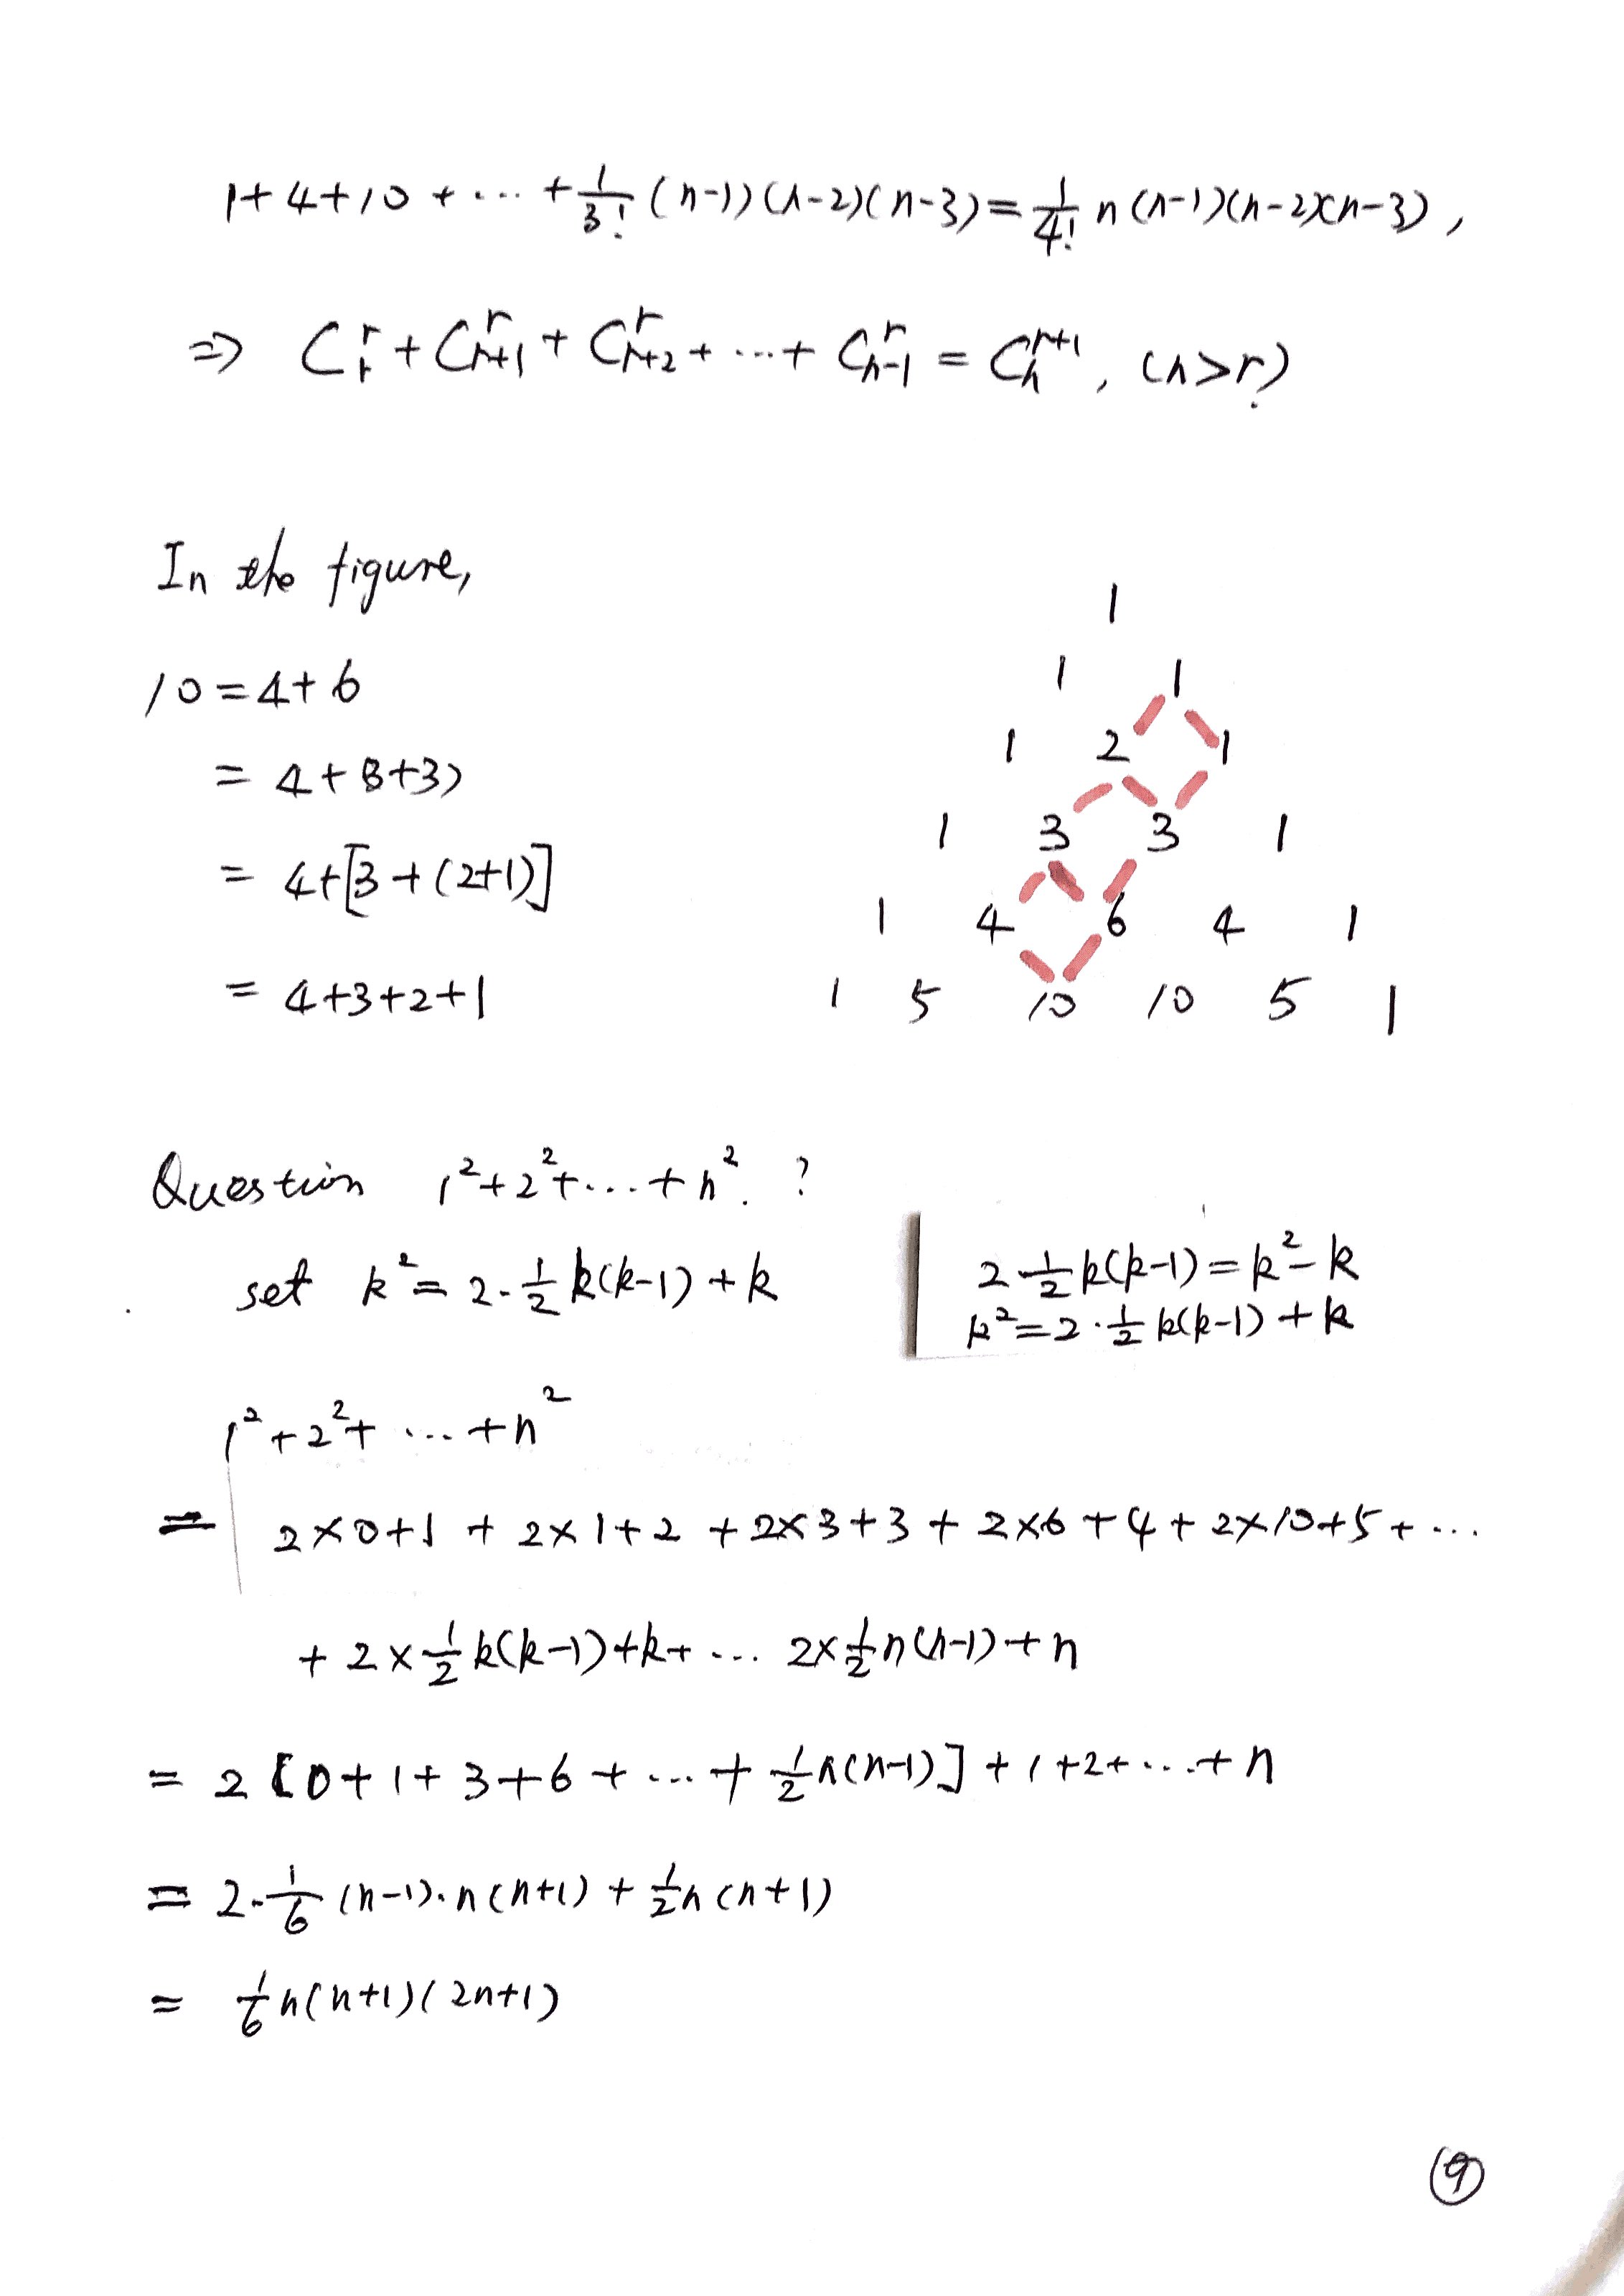 1+4+10+...+1/3! (n-1)(n-2)(n-3)=1/4! n(n-1)(n-2)(n-3),
⇒ C_r^r+C_{r+1}^r+C_{r+2}^r+...+C_{n-1}^r=C_n^{r+1}, (n>r).
In the figure,
10=4+6
=4+(3+3)
=4+[3+(2+1)]
=4+3+2+1
1
1 1
1 2 1
1 3 3 1
1 4 6 4 1
1 5 10 10 5 1
Question 1²+2²+...+n². ?
set k²=2·1/2 k(k-1)+k
2·1/2 k(k-1)=k²-k
k²=2·1/2 k(k-1)+k
1²+2²+...+n²
= 2×0+1+2×1+2+2×3+3+2×6+4+2×10+5+...
+2×1/2 k(k-1)+k+... 2×1/2 n(n-1)+n
=2[0+1+3+6+...+1/2 n(n-1)]+1+2+...+n
=2·1/6 (n-1)·n(n+1)+1/2 n(n+1)
=1/6 n(n+1)(2n+1)
⑨